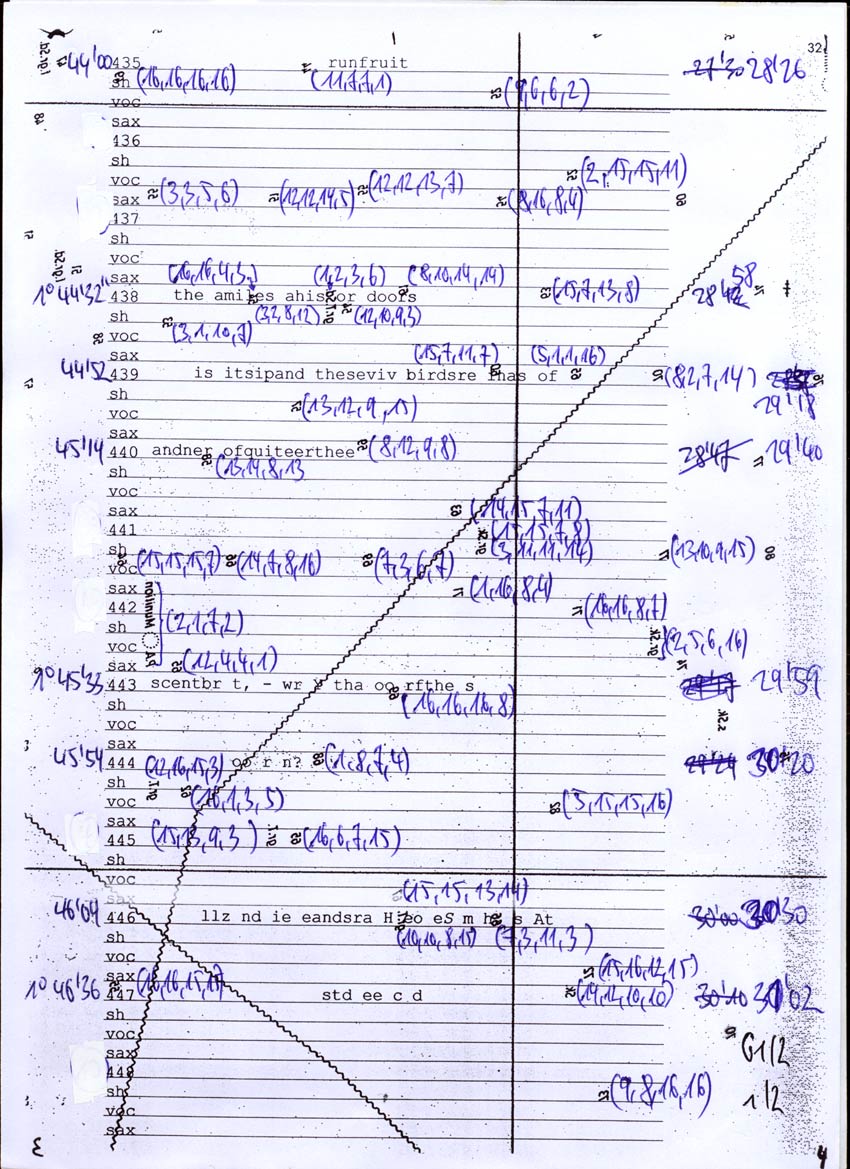 32
44'00 435 runfruit 27'30 28'26
sh (16,16,16,16) (11,7,7,1) (9,6,6,2)
voc
sax
436
sh (2,15,15,11)
voc (3,3,5,6) (12,12,14,5) (12,12,13,7)
sax (8,16,8,4)
437
sh
voc
sax (16,16,4,3) (1,2,3,6) (8,10,14,14) (15,7,13,8) 58
1°44'32" 438 the amires ahistor doors 28'42
sh (3,2,8,12) (12,10,9,3)
voc (3,1,10,7)
sax (15,7,11,7) (5,1,1,16)
44'52 439 is itsipand theseviv birdsre rhas of (8,2,7,14)
sh (13,12,9,15) 29'18
voc
sax
45'14 440 andner ofquiteerthee (8,12,9,8) 28'47 29'40
sh (13,14,8,13
voc
sax (14,15,7,11)
441 (15,15,7,8)
sh (3,11,11,14) (13,10,9,15)
voc (15,15,15,7) (14,7,8,16) (7,3,6,7)
sax (1,16,8,4)
442 (16,16,8,7)
sh (2,1,7,2)
voc (2,5,6,16)
sax (12,4,4,1)
1°45'33 443 scentbr t, - wr y tha oo rfthe s 29'59
sh (16,16,16,8)
voc
sax
45'54 444 (12,16,15,3) oo r n? (1,8,7,4) 30'20
sh
voc (16,1,3,5) (3,15,15,16)
sax
445 (15,13,9,3) (16,6,7,15)
sh
voc (15,15,13,14)
sax
46'04 446 llz nd ie eandsra H so eS m h s At 30'00 30'30
sh (10,10,8,15) (7,3,11,3)
voc
sax (16,16,15,15) (15,16,12,15)
1°46'36 447 std ee c d (14,12,10,10) 30'10 31'02
sh
voc G1/2
sax
448
sh (9,8,16,16) 1/2
voc
sax
3 4